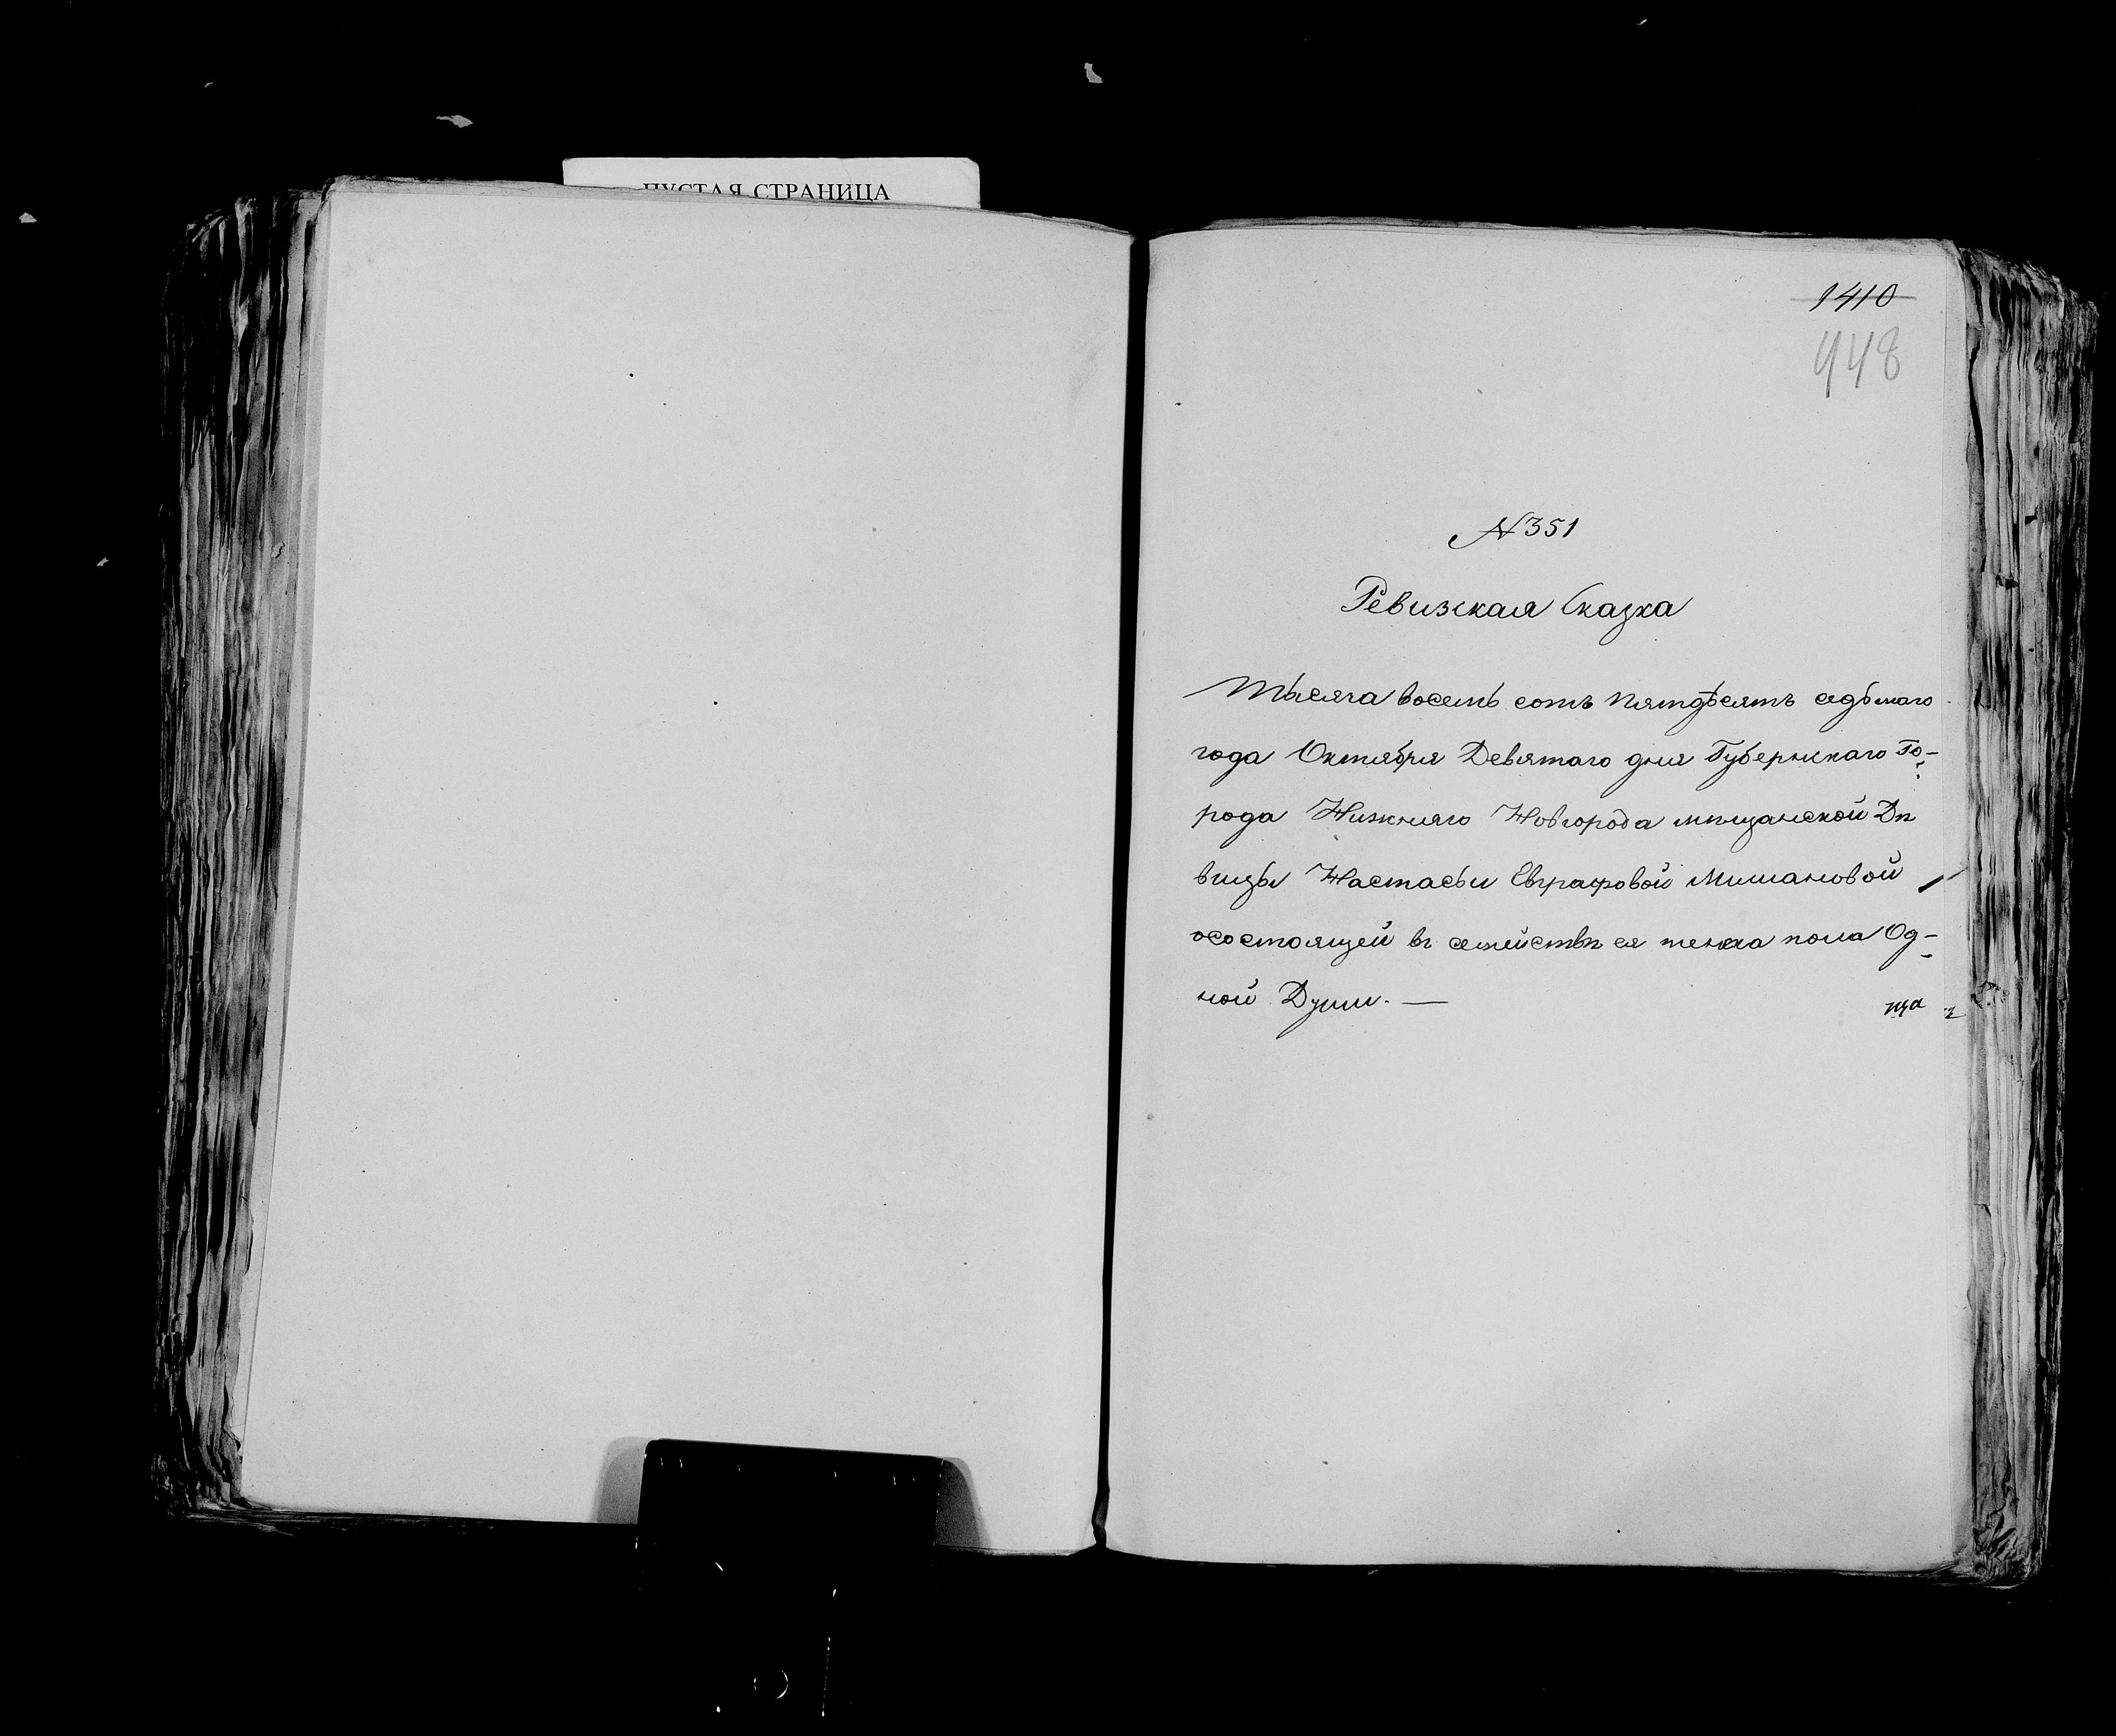 ПУСТАЯ СТРАНИЦА
1410
448
N 351
Ревизская Сказка
Тысяча восемь сотъ пятдѣсятъ седьмаго
года Октября Девятаго дня Губернскаго Го-
рода Нижняго Новгорода мѣщанской Дѣ
вицы Настасьи Евграфовой Мишановой
осостоящей въ семействѣ ея женска пола Од-
ной Души. —